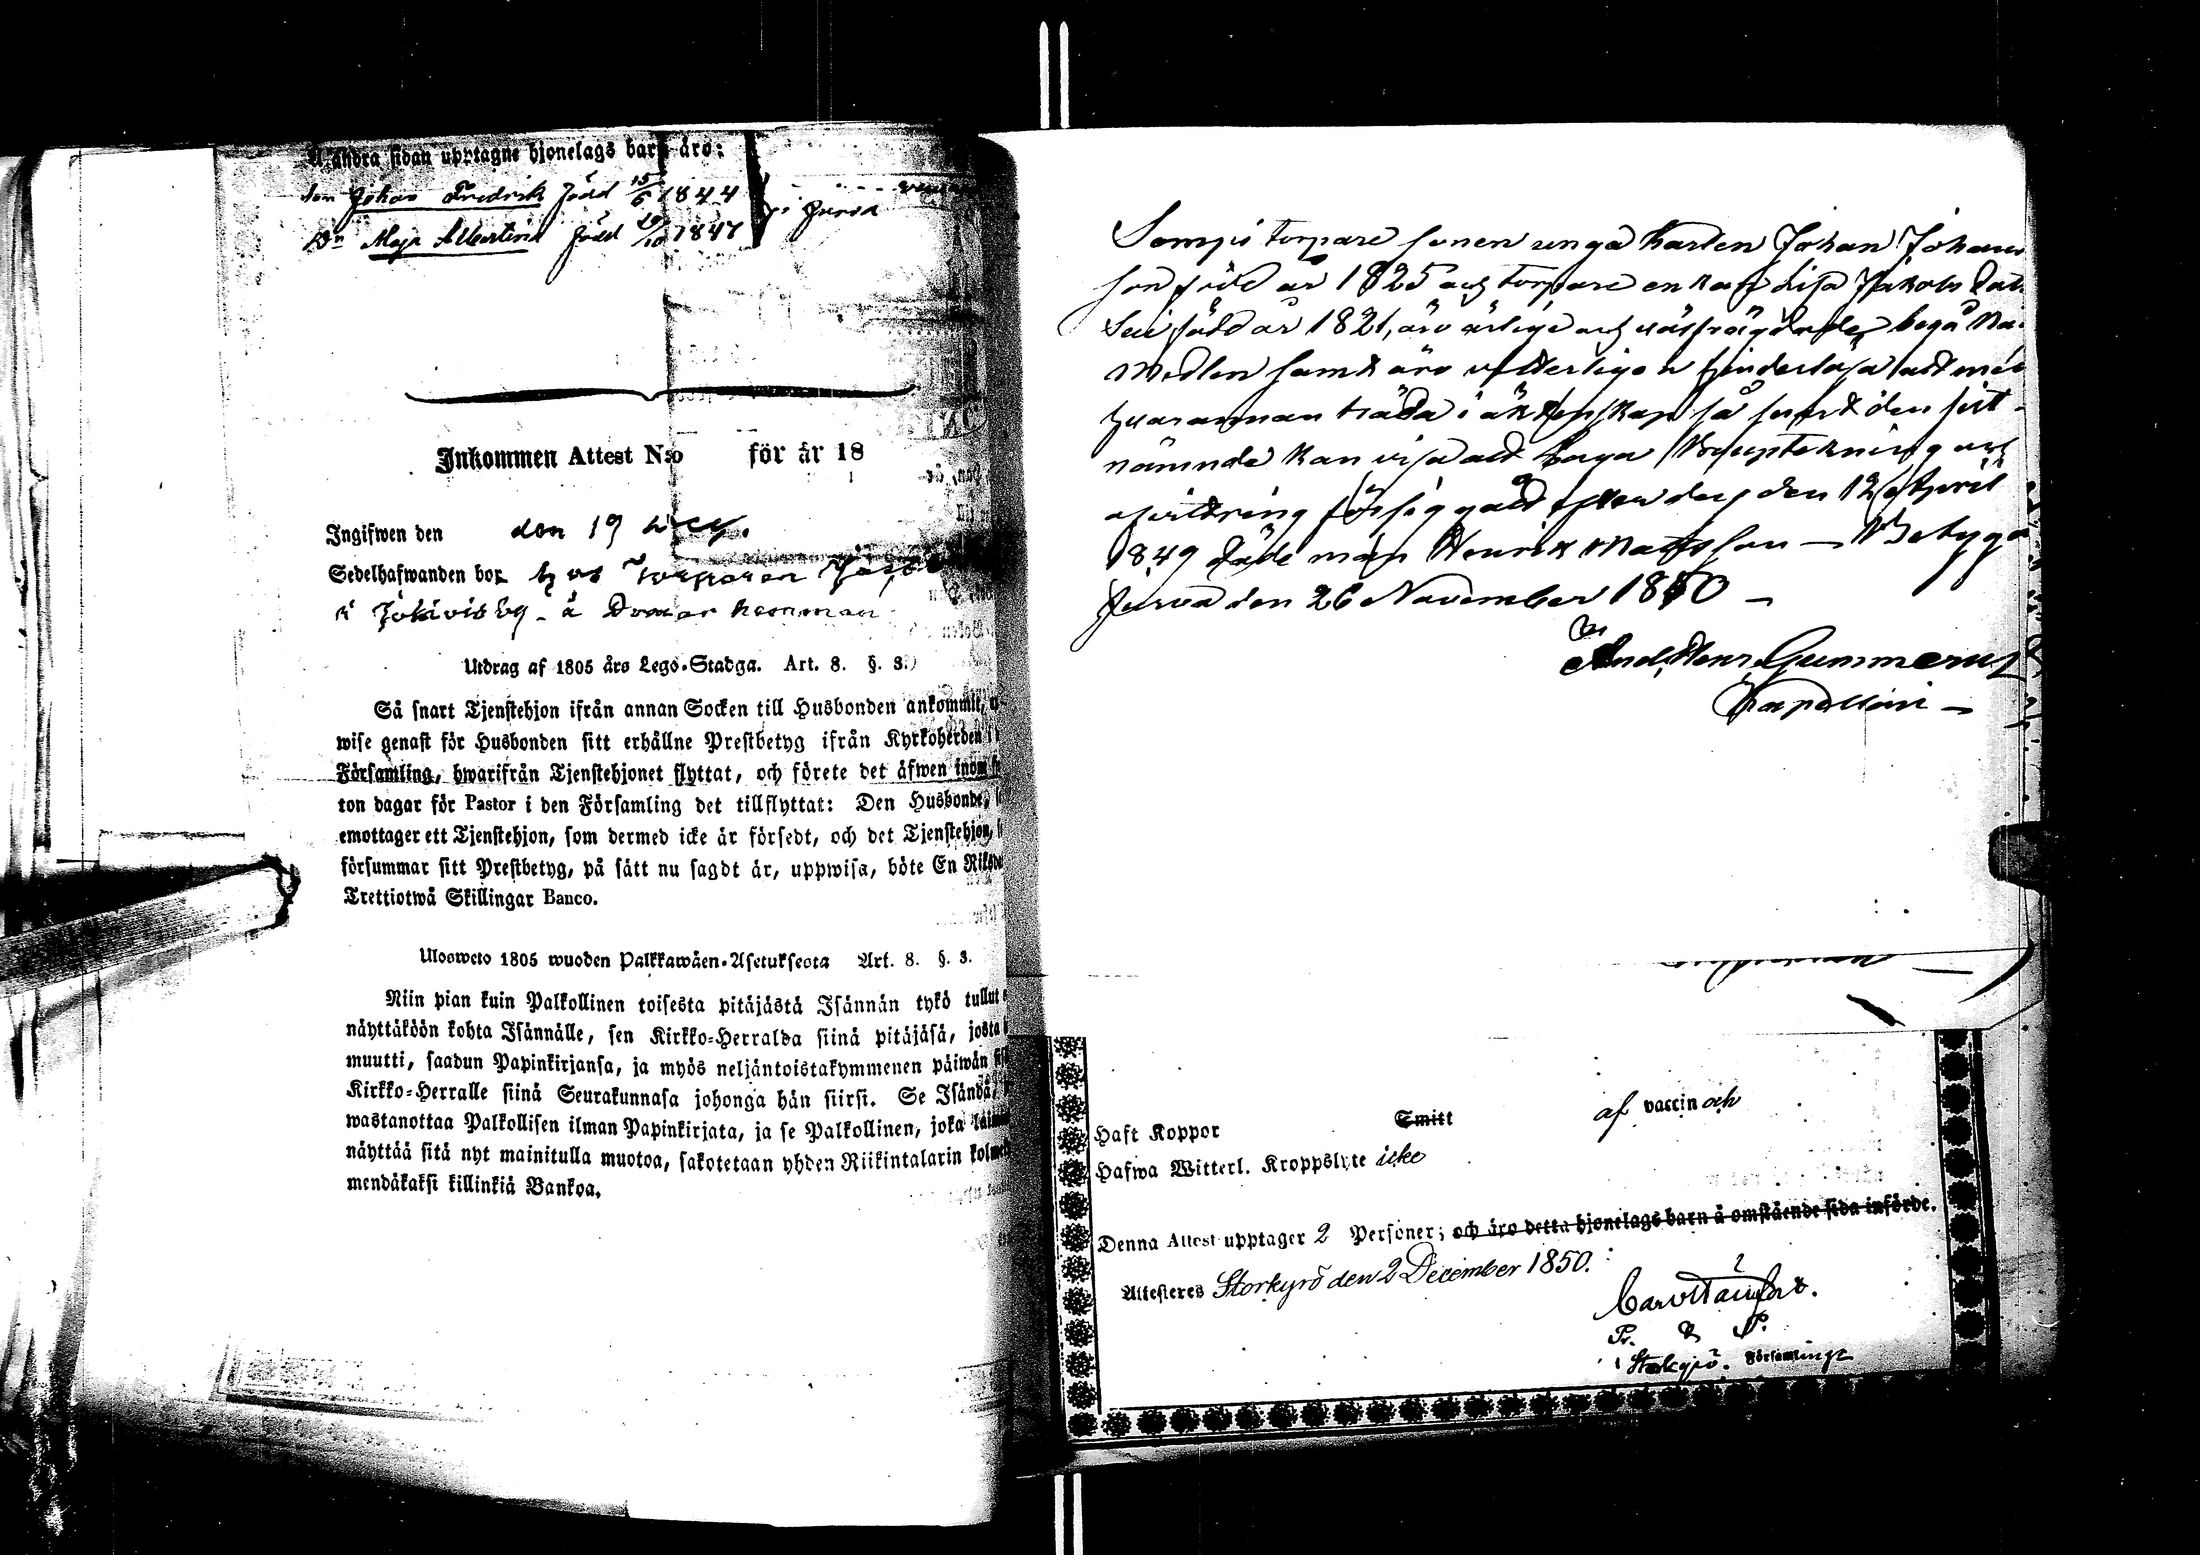 Å andra sidan upptagne hjonelags barn äro:
son Johan Fredrik född 15/6 1844
Dr Maja Albertina född 29/10 1847
i Jurva
Inkommen Attest N:o för år 18
Ingifwen den den 19
Sedelhafwanden bor hos Torparen
i Jokivisby å Domar hemman
Utdrag af 1805 års Lego-Stadga. Art. 8. §. 3.
Så snart Tjenstehjon ifrån annan Socken till Husbonden ankommit,
wise genast för Husbonden sitt erhållne Prestbetyg ifrån Kyrkoherden i
Församling, hwarifrån Tjenstehjonet flyttat, och förete det äfwen inom
ton dagar för Pastor i den Församling det tillflyttat: Den Husbonde,
emottager ett Tjenstehjon, som dermed icke är försedt, och det Tjenstehjon,
försummar sitt Prestbetyg, på sätt nu sagdt är, uppwisa, böte En Riksda
Trettiotwå Skillingar Banco.
Ulosweto 1805 wuoden Palkkawäen-Asetuksesta Art. 8. §. 3.
Niin pian kuin Palkollinen toisesta pitäjästä Isännän tykö tullut
näyttäköön kohta Isännälle, sen Kirkko-Herralda siinä pitäjäsä, josta
muutti, saadun Papinkirjansa, ja myös neljäntoistakymmenen päiwän
Kirkko-Herralle siinä Seurakunnasa johonga hän siirsi. Se Isändä,
wastanottaa Palkollisen ilman Papinkirjata, ja se Palkollinen, joka
näyttää sitä nyt mainitulla muotoa, sakotetaan yhden Riikintalarin kolme
mendäkaksi killinkiä Bankoa.
Sompis torpare sonen unga Karlen Johan Johans
son född år 1825 och torpare enkan Lisa Jakobs dott
född år 1821, äro ärlige och begå Nå
Medlen samt äro vetterligen hinderlösa att med
hvarannan träda i äktenskap så snart den sist
nämnde kan visa att boupptekning och
afvittring försiggått efter dess den 12 April
1849 döde man Henrik Mattsson — Betyga
Jurva den 26 November 1850 —
And. Henr. Gummerus
Kapellan —
Haft Koppor Smitt af vaccin och
Hafwa Witterl. Kroppslyte icke
Denna Attest upptager 2 Personer; och äro detta hjonelags barn å omstående sida införde.
Attesteres Storkyrö den 2 December 1850.
Pr. & P.
i Storkyrö. Församlingt